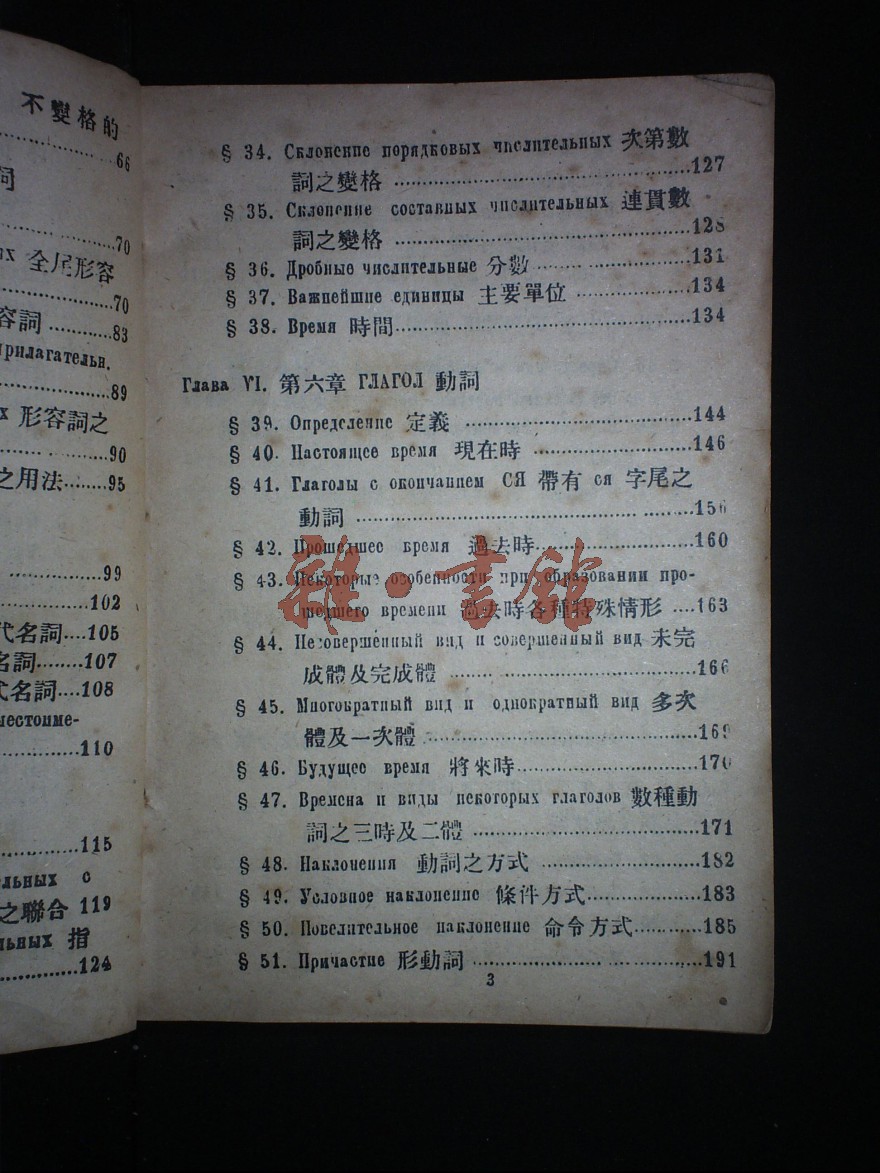 不變格的
66
詞
70
ых 全尾形容
70
容詞 83
прилагательн.
89
х 形容詞之
90
之用法 95
99
102
代名詞 105
名詞 107
代名詞 108
местоиме-
110
115
льных с
之聯合 119
льных 指
124
§ 34. Склонение порядковых числительных 次第數
詞之變格 127
§ 35. Склонение составных числительных 連貫數
詞之變格 128
§ 36. Дробные числительные 分數 131
§ 37. Важнейшие единицы 主要單位 134
§ 38. Время 時間 134
Глава VI. 第六章 ГЛАГОЛ 動詞
§ 39. Определение 定義 144
§ 40. Настоящее время 現在時 146
§ 41. Глаголы с окончанием СЯ 帶有 ся 字尾之
動詞 156
§ 42. Прошедшее время 過去時 160
§ 43. Некоторые особенности при образовании про-
шедшего времени 過去時各種特殊情形 163
§ 44. Несовершенный вид и совершенный вид 未完
成體及完成體 166
§ 45. Многократный вид и однократный вид 多次
體及一次體 169
§ 46. Будущее время 將來時 170
§ 47. Времена и виды некоторых глаголов 數種動
詞之三時及二體 171
§ 48. Наклонения 動詞之方式 182
§ 49. Условное наклонение 條件方式 183
§ 50. Повелительное наклонение 命令方式 185
§ 51. Причастие 形動詞 191
3
雜·書館